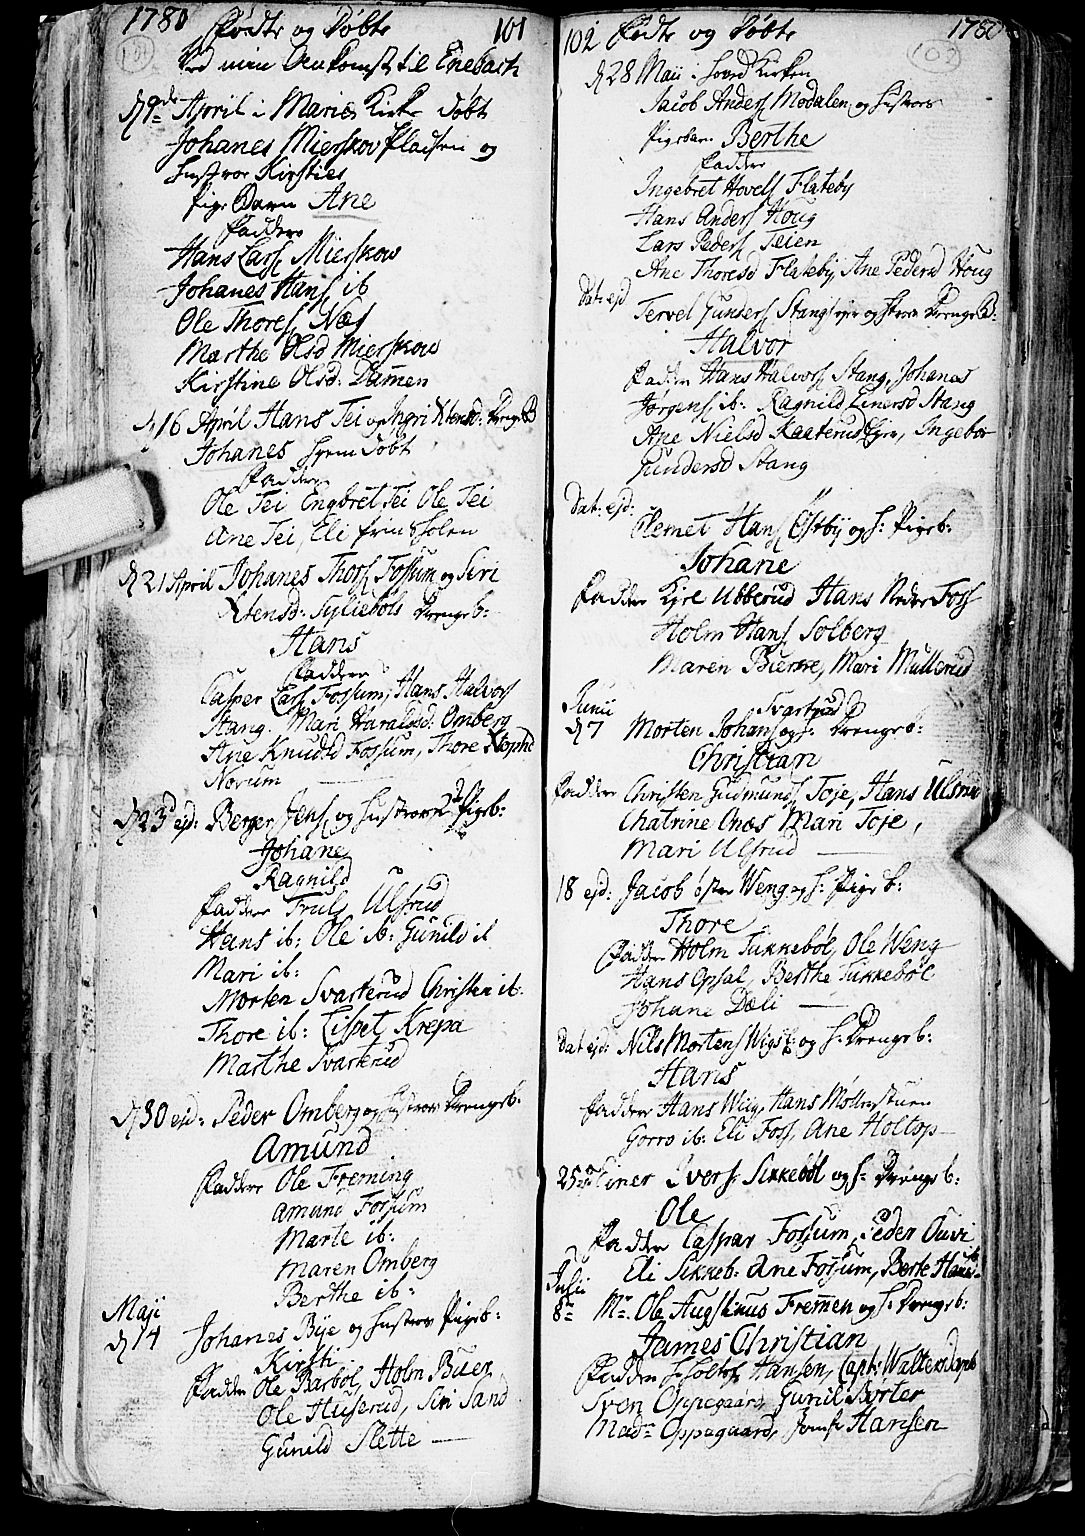 1780 Fødte og Døbte 101
Ved min Ankomst til Enebach
d 9de April i Maries Kirke døbt
Johanes Mierskov Pladsen og
Hustroe Kirsties
Pige Barn Ane
Faddere
Hans Lars Mierskow
Johanes Hans ib
Ole Thores Næs
Marthe Olsd Mierskow
Kirstine Olsd: Dammen
d 16 April Hans Tei og Ingri Xtensd: DrengeB
Johanes hjemdøbt
Faddere
Ole Tei Engbret Tei Ole Tei
Ane Tei, Eli
d 21 April Johanes Thors Fossum og Siri
Xtensd: Drengeb:
Hans
Faddere
Casper Lars Fossum, Hans Halvors
Stang. Mari Haraldsd: Omberg
Ane Knudsd Fossum, Thore
Novum
d 23 ejd: Berger Jens og Hustroes Pigeb:
Johane
Ragnild
Faddere Truls Ulsrud
Hans ib: Ole ib: Gunild ib
Mari ib:
Morten Svarterud Christen ib:
Thore ib: Lisbet Krepa
Marthe Svarterud
d 30 ejd: Peder Omberg og Hustroes Drengeb:
Amund
Faddere Ole Freming
Amund Fossum
Marte ib:
Maren Omberg
Berthe ib:
Maji
d 14 Johanes Bye og Hustroes Pigeb:
Kirsti
Faddere Ole Barbøl, Holm Buer
Ole Huserud, Siri Sand
Gunild Slette
102 Fødte og Døbte 1780
102
d 28 Maii i Hoved Kirken
Jacob Anders Modalen og Hustroes
Pigebarn Berthe
Faddere
Ingebret Hovels Flateby
Hans Anders Houg
Lars Peders Teien
Ane Thoresd Flateby, Ane Pedersd Houg
Dat: ejd Tervel Gunders Stang og Hstroes DrengeB:
Halvor
Faddere Hans Halvors Stang, Johanes
Jørgens ib: Ragnild Einersd Stang
Ane Nielsd Ejer, Ingebor
Gundersd Stang
Dat: ejd:
Clemet Hans Østby og H: Pigeb:
Johane
Faddere Kjel Ubberud Hans Neder Foss
Holm Hans Solberg
Maren Bierke, Mari Mullerud
Junii Svartrud
d 7 Morten Johans og H: Drengeb:
Christian
Faddere Christen Gudmunds Toje, Hans Ulsrud
Chatrine Mari Toje,
Mari Ulsrud
18 ejd: Jacob øster Weng og H: Pigeb:
Thore
Faddere Holm Tukkebøl, Ole Weng
Hans Opsal, Berthe Tukkebøl
Johane Dæli
Dat ejd: Nils Mortens og H: Drengeb:
Hans
Faddere Hans Wiig, Hans Møllerstuen
Gorro ib: Eli Foss, Ane Holtop
25de Einer Ivers Sikkebøl og H: Drengeb:
Ole
Faddere Caspar Fossum, Peder Ouvi
Eli Sikkeb: Ane Fossum, Berte
Julii
8de Mr. Ole Augstinus Fremen og H: Drengeb:
James Christian
Faddere Hansen, Capt: Waltersdorph
Sven Oppegaard, Gunil Børter
Mad: Oppegaard, Jomfr Hansen